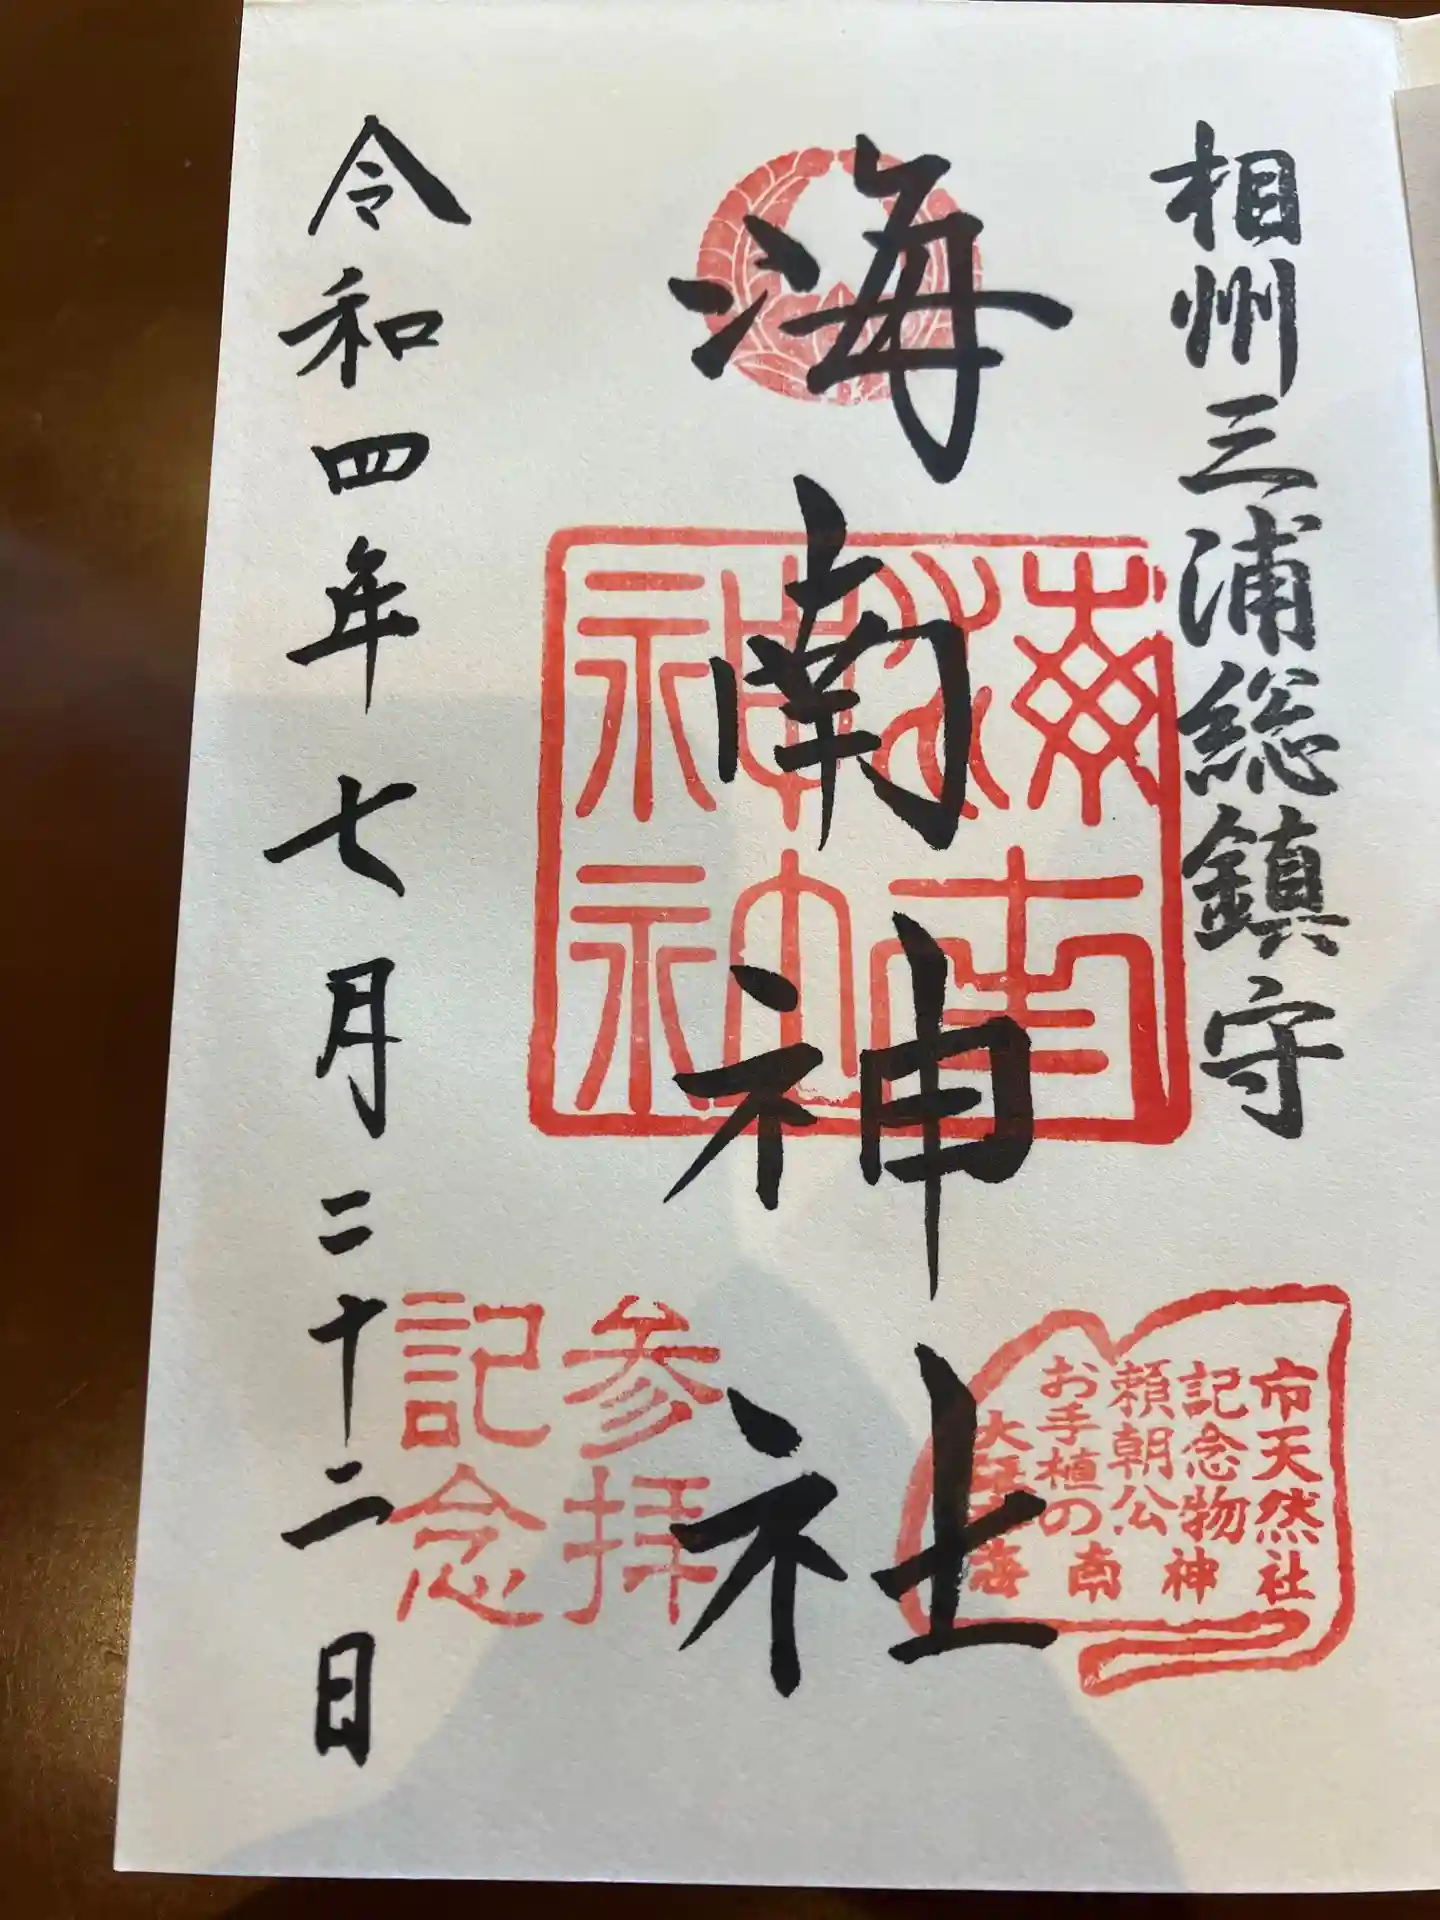 相州三浦総鎮守
海南神社
海南神社
市天然
記念物
頼朝公
お手植の
海南神社
参拝
記念
令和四年七月二十二日